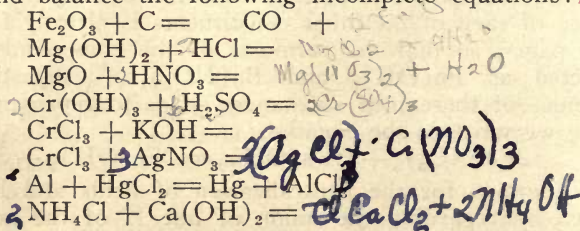 nd balance the following incomplete equations:
Fe₂O₃ + C = CO +
Mg(OH)₂ + 2HCl = MgCl₂ + 2H₂O
MgO + 2HNO₃ = Mg(NO₃)₂ + H₂O
2Cr(OH)₃ + H₂SO₄ = Cr(SO₄)₃
CrCl₃ + KOH =
CrCl₃ + 3AgNO₃ = 3(AgCl) + C(NO₃)₃
Al + HgCl₂ = Hg + AlCl₃
2NH₄Cl + Ca(OH)₂ = CaCl₂ + 2NH₄OH